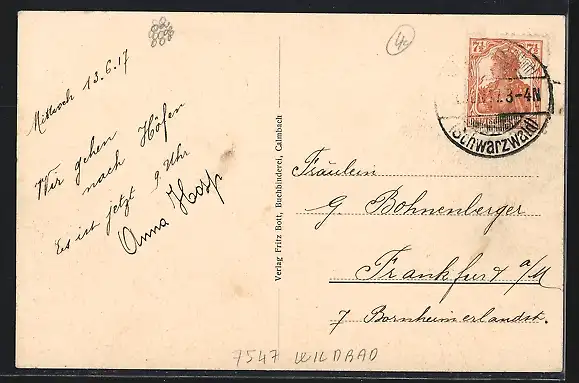 Mittwoch 13.6.17
Wir gehen
nach Höfen
Es ist jetzt 9 Uhr
Anna Hosp
Verlag Fritz Bott, Buchbinderei, Calmbach
4.
7½ 7½
3-4N
(Schwarzwald)
Fräulein
G. Bohnenberger
Frankfurt a/M
7 Bornheimerlandst.
7547 WILDBAD